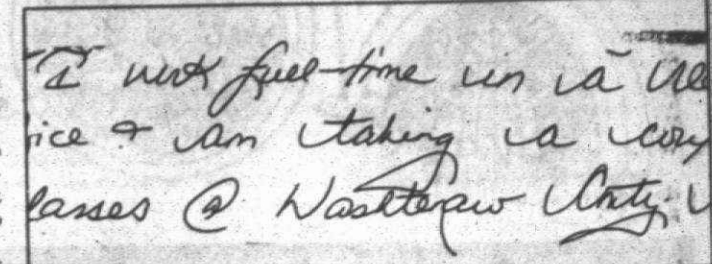 I work full-time in a
ice & am taking a
lasses @ Washtenaw Cnty.